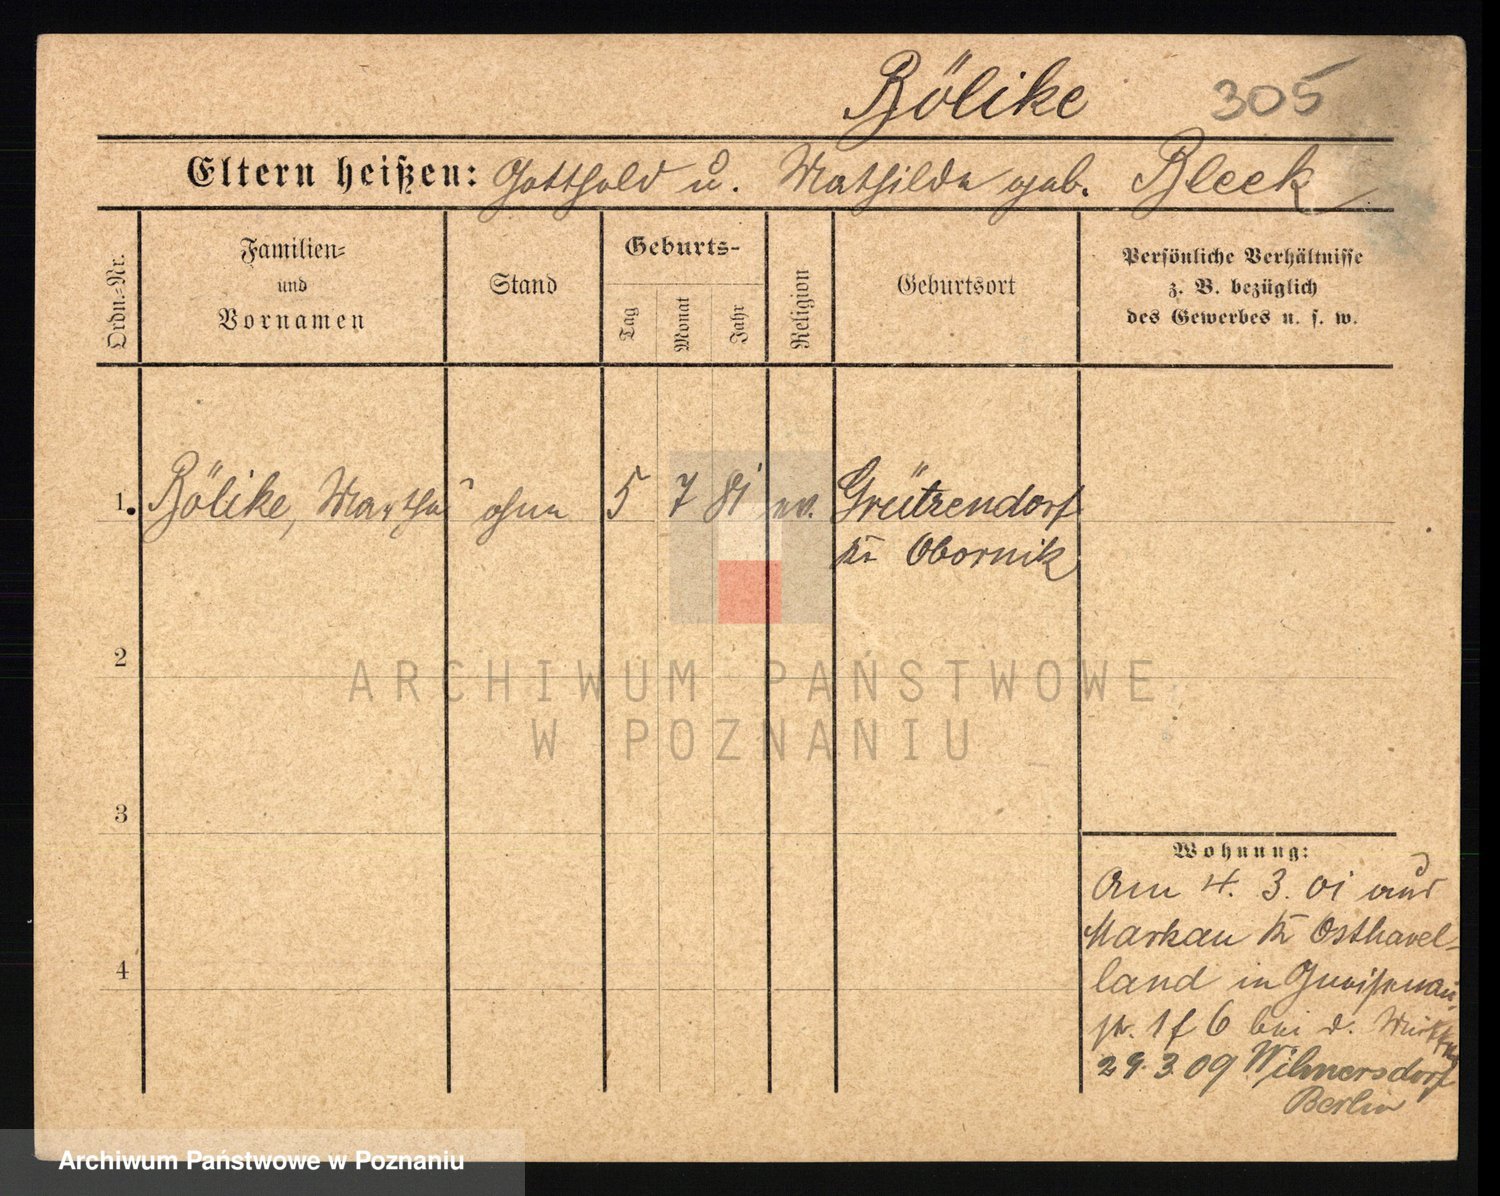 Bölike 305
Eltern heißen: Gotthold u. Mathilde geb. Bleek
Ordn.-Nr.
Familien-
und
Vornamen
Stand
Geburts-
Tag
Monat
Jahr
Religion
Geburtsort
Persönliche Verhältnisse
z. B. bezüglich
des Gewerbes u. s. w.
1. Bölike, Martha ohne 5 7 81 ev. Grützendorf
Kr Obornik
2
ARCHIWUM PAŃSTWOWE
W POZNANIU
3
4
Wohnung:
Am 4. 3. 01 aus
Markau Kr Osthavel-
land in Gneisenau-
str. 1 f 6 bei d.
29.3.09 Wilmersdorf
Berlin
Archiwum Państwowe w Poznaniu